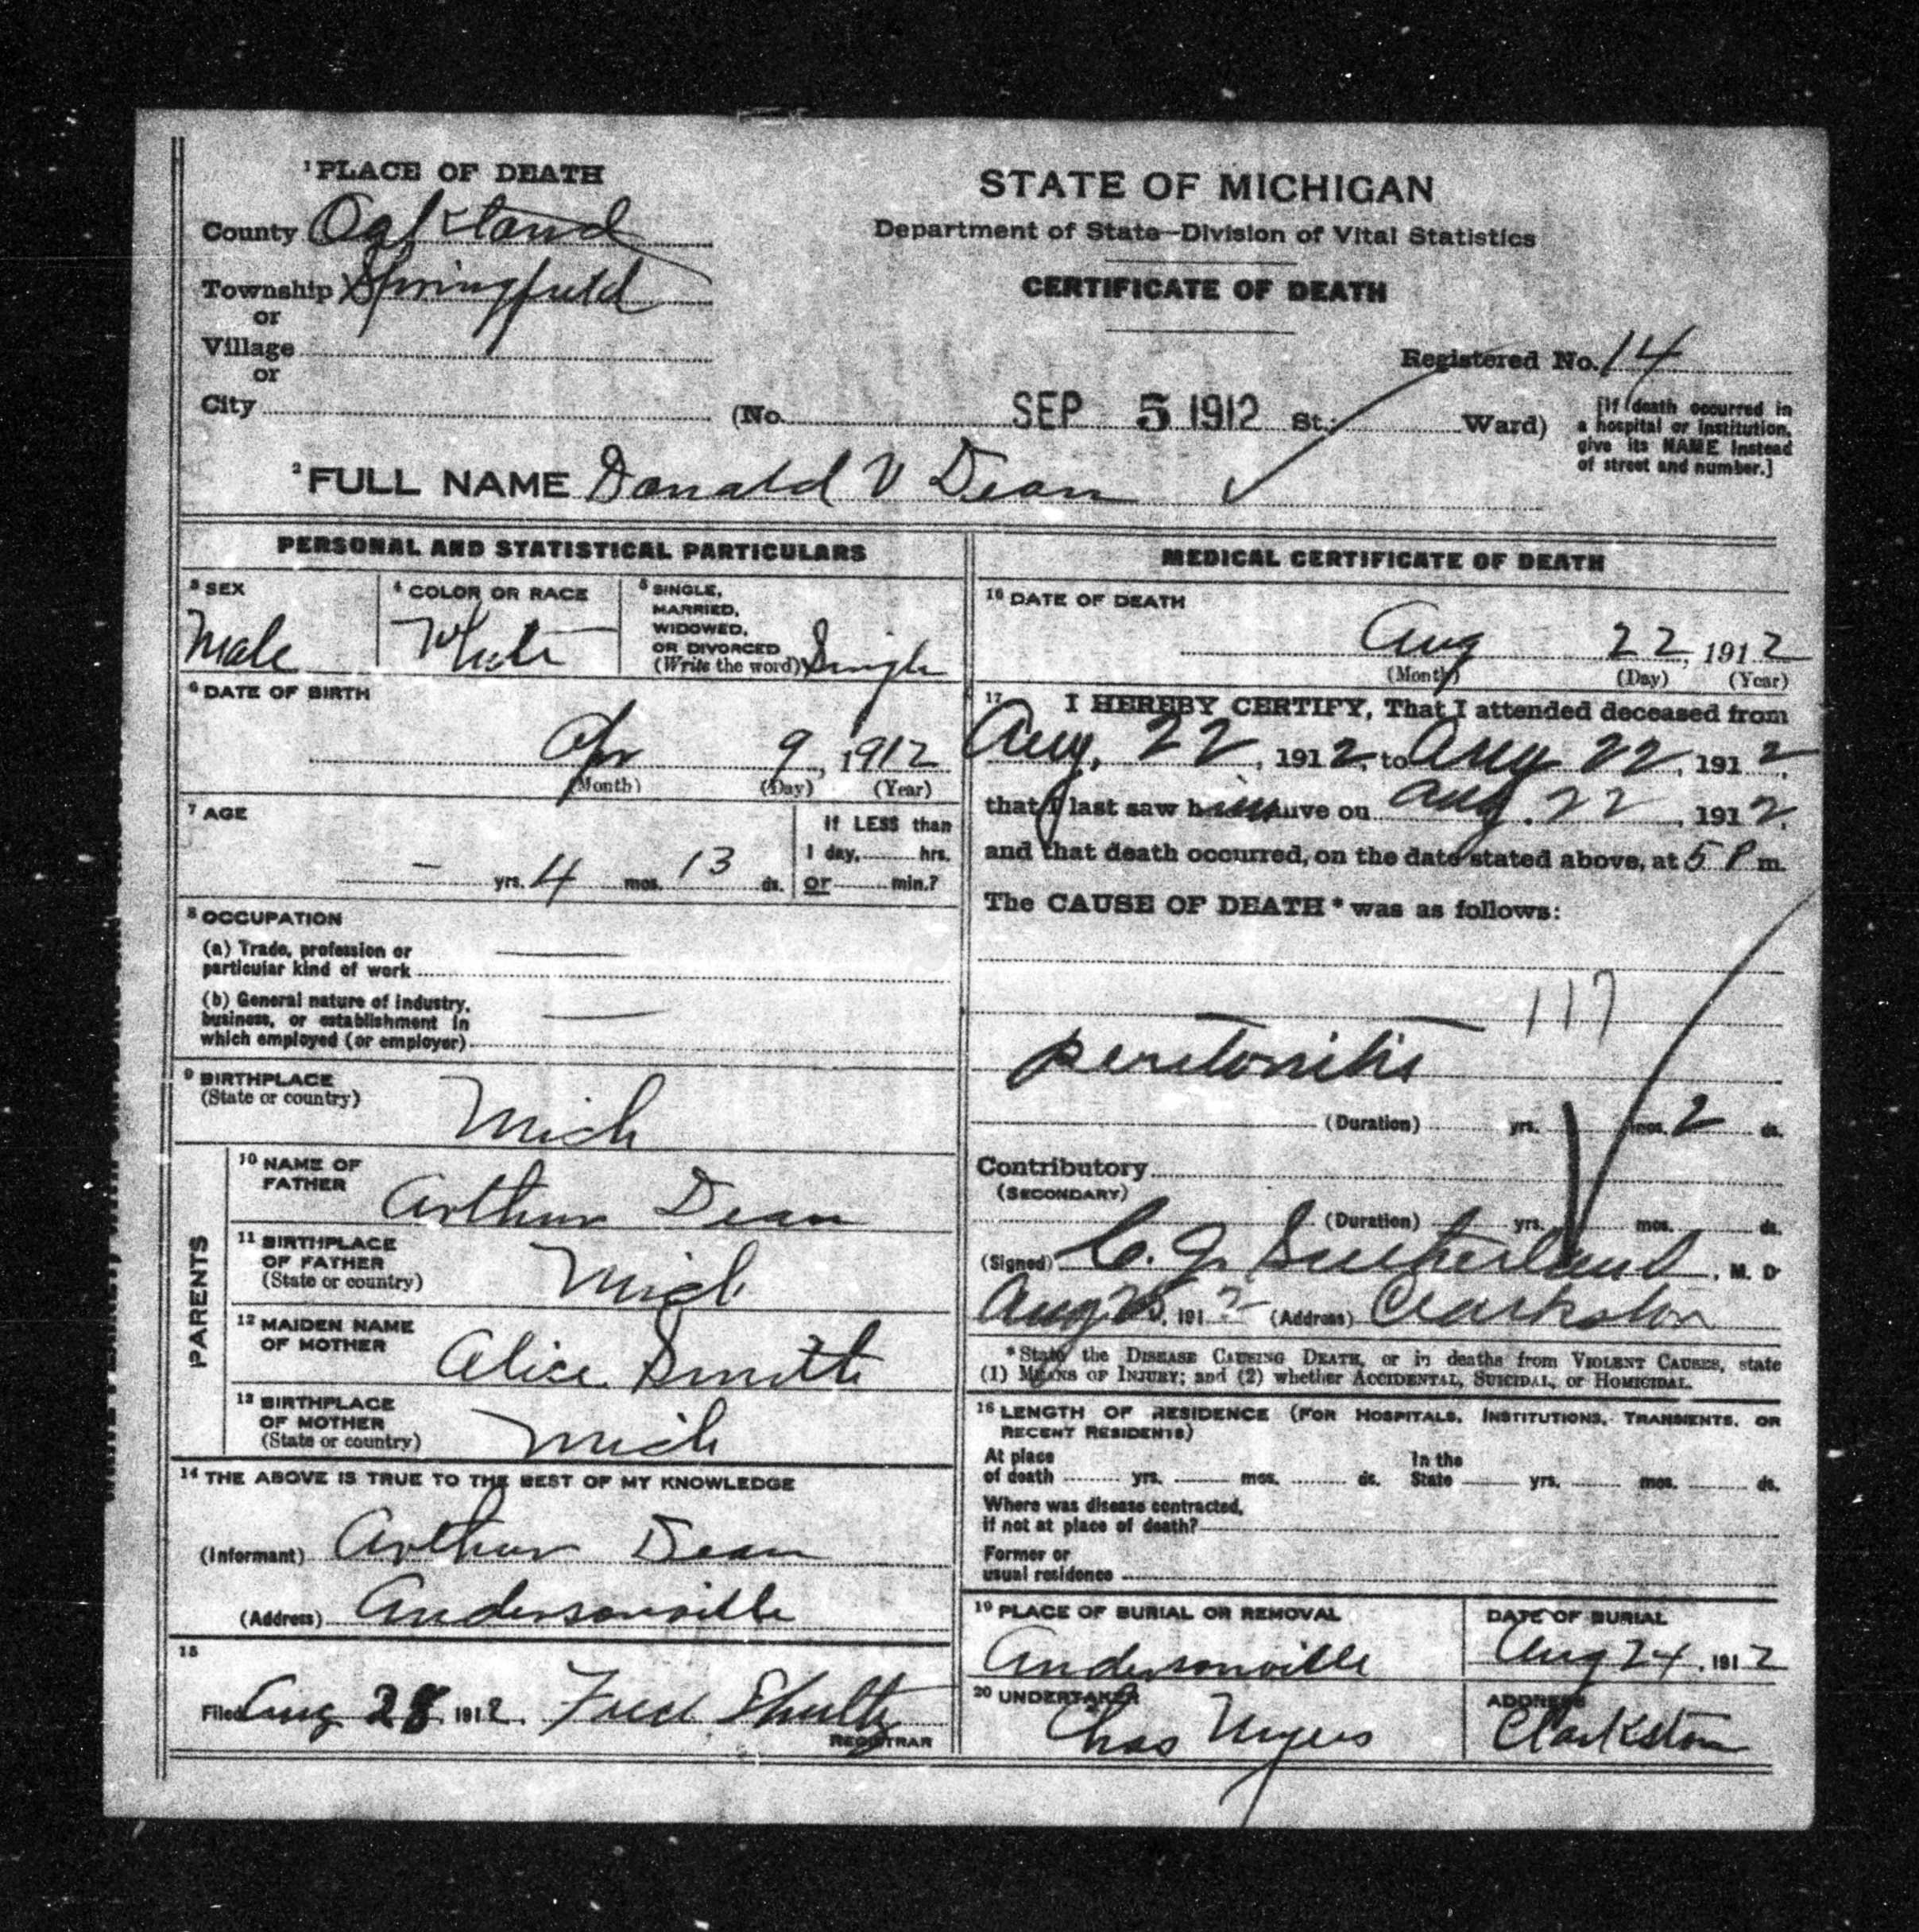 1 PLACE OF DEATH
County Oakland
Township Springfield
or
Village
or
City
STATE OF MICHIGAN
Department of State—Division of Vital Statistics
CERTIFICATE OF DEATH
Registered No. 14
(No. SEP 5 1912 St.; Ward)
[If death occurred in
a hospital or institution,
give its NAME instead
of street and number.]
2 FULL NAME Donald V Dean
PERSONAL AND STATISTICAL PARTICULARS
3 SEX
Male
4 COLOR OR RACE
White
5 SINGLE,
MARRIED,
WIDOWED,
OR DIVORCED
(Write the word) Single
6 DATE OF BIRTH
Apr 9, 1912
(Month) (Day) (Year)
7 AGE
— yrs. 4 mos. 13 ds.
If LESS than
1 day, hrs.
or min.?
8 OCCUPATION
(a) Trade, profession or
particular kind of work
(b) General nature of industry,
business, or establishment in
which employed (or employer)
9 BIRTHPLACE
(State or country)
Mich
PARENTS
10 NAME OF
FATHER
Arthur Dean
11 BIRTHPLACE
OF FATHER
(State or country)
Mich
12 MAIDEN NAME
OF MOTHER
Alice Smith
13 BIRTHPLACE
OF MOTHER
(State or country)
Mich
14 THE ABOVE IS TRUE TO THE BEST OF MY KNOWLEDGE
(Informant) Arthur Dean
(Address) Andersonville
15
Filed Aug 28, 1912. Fred Shultz
REGISTRAR
MEDICAL CERTIFICATE OF DEATH
16 DATE OF DEATH
Aug 22, 1912
(Month) (Day) (Year)
17 I HEREBY CERTIFY, That I attended deceased from
Aug, 22, 1912, to Aug 22, 1912,
that I last saw him alive on Aug. 22, 1912,
and that death occurred, on the date stated above, at 5 P m.
The CAUSE OF DEATH* was as follows:
117
peritonitis
(Duration) yrs. mos. 2 ds.
Contributory
(SECONDARY)
(Duration) yrs. mos. ds.
(Signed) C. J. Sutherland, M. D
Aug 25, 1912 (Address) Clarkston
*State the DISEASE CAUSING DEATH, or in deaths from VIOLENT CAUSES, state
(1) MEANS OF INJURY; and (2) whether ACCIDENTAL, SUICIDAL, or HOMICIDAL.
18 LENGTH OF RESIDENCE (FOR HOSPITALS, INSTITUTIONS, TRANSIENTS, OR
RECENT RESIDENTS)
At place
of death yrs. mos. ds. In the
State yrs. mos. ds.
Where was disease contracted,
if not at place of death?
Former or
usual residence
19 PLACE OF BURIAL OR REMOVAL
Andersonville
DATE OF BURIAL
Aug 24, 1912
20 UNDERTAKER
Chas Myers
ADDRESS
Clarkston